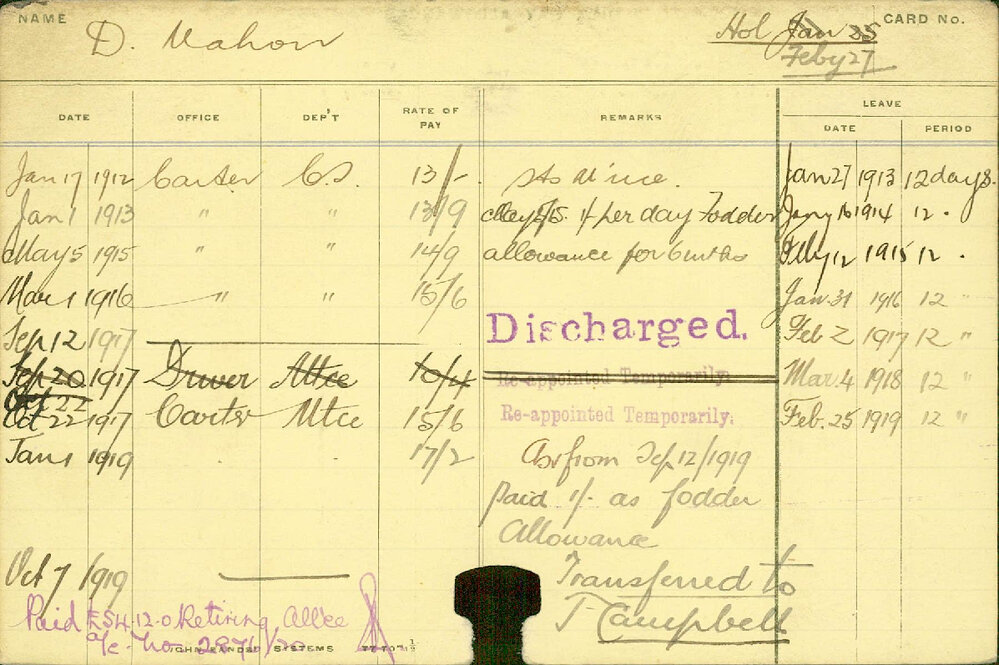 NAME D. Mahon Hol Jan 25 CARD No.
Feby 27
DATE OFFICE DEP'T RATE OF PAY REMARKS LEAVE
DATE PERIOD
Jan 17 1912 Carter 13/- Jan 27 1913 12 days.
Jan 1 1913 " " 13/9 May 5/15 1/- per day Fodder Jany 16 1914 12 .
May 5 1915 " " 14/9 allowance for 6 mths Feby 12 1915 12 .
Mar 1 1916 " " 15/6 Jan. 31 1916 12 "
Sep 12 1917 Discharged. Feb 2 1917 12 "
Sep 20 1917 Driver Mtce 10/4 Re-appointed Temporarily. Mar. 4 1918 12 "
Oct 22
Oct 22 1917 Carter Mtce 15/6 Re-appointed Temporarily. Feb. 25 1919 12 "
Jan 1 1919 17/2 from Sep 12/1919
Paid 1/- as fodder
Allowance
Oct 7 1919 Transferred to
T Campbell
Paid £54.12.0 Retiring Allce
a/c No 2971/20
SYSTEMS